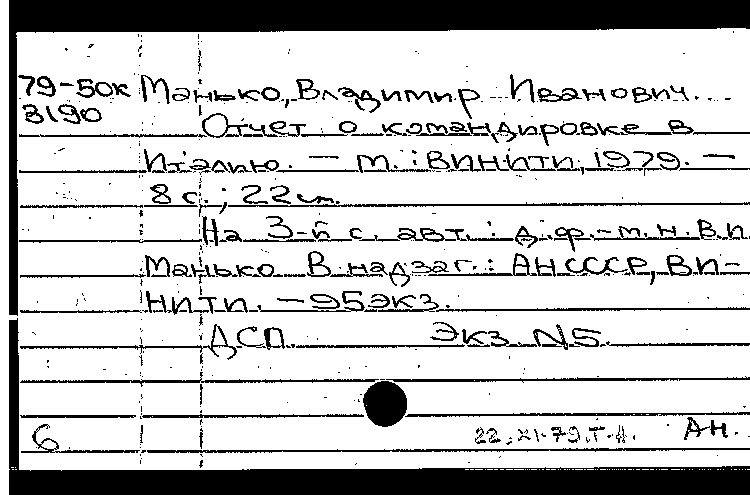 79-50к Манько, Владимир Иванович...
3190 Отчет о командировке в
Италию. — М.: ВИНИТИ, 1979. —
8 с.; 22 см.
На 3-й с. авт.: д.ф.-м.н. В.И.
Манько В надзаг.: АН СССР, ВИ-
НИТИ. — 95 экз.
ДСП. Экз. N5.
6 22.XI.79. Т.А. АН.